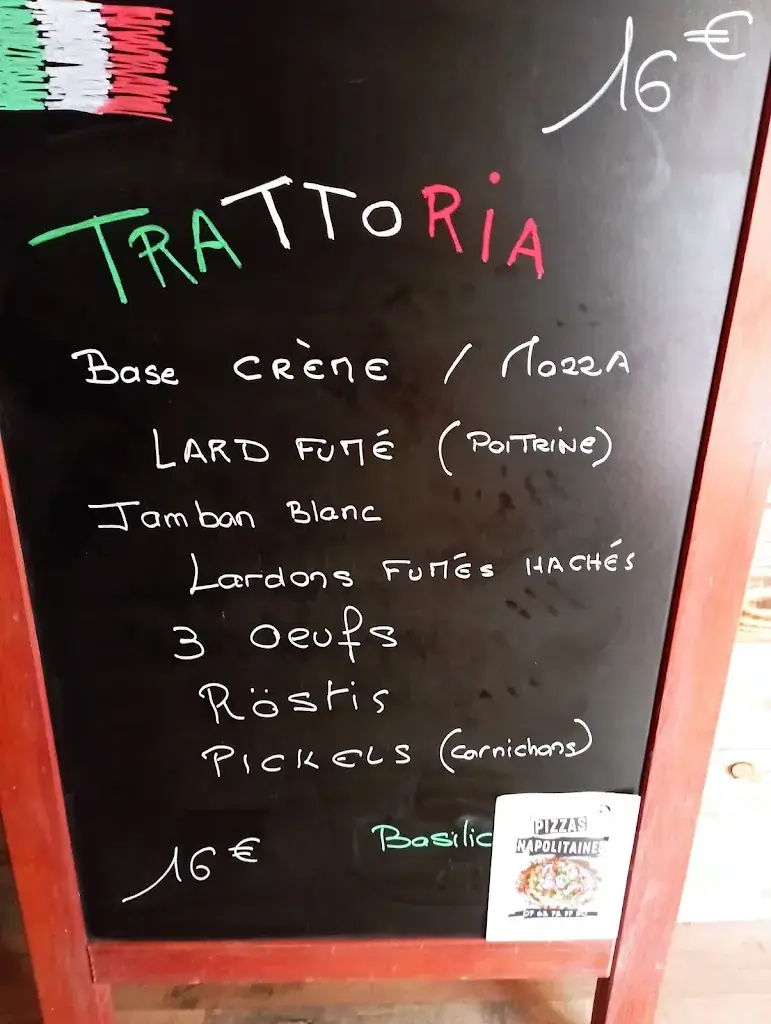 16€
TRATTORiA
Base CRÈME / MOZZA
LARD FUMÉ (POITRINE)
Jambon Blanc
Lardons FUMÉS HACHÉS
3 Oeufs
Röstis
PICKELS (Cornichons)
Basilic
16€
PIZZAS
NAPOLITAINES